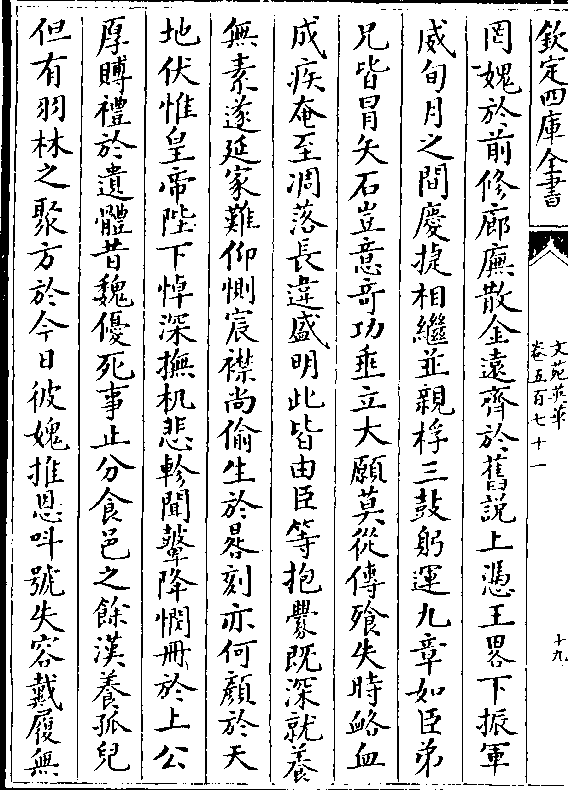 欽定四庫全書
文苑英華
卷五百七十一
十九
罔媿於前修廊廡散金遠齊於舊説上憑王畧下振軍
威旬月之間慶捷相繼並親桴三鼓躬運九章如臣弟
兄皆冒矢石豈意奇功垂立大願莫從傳飱失時衂血
成疾奄至凋落長違盛明此皆由臣等抱舋既深就養
無素遂延家難仰惻宸襟尚偷生於晷刻亦何顔於天
地伏惟皇帝陛下悼深撫机悲軫聞鼙降憫冊於上公
厚賻禮於遺體昔魏優死事止分食邑之餘漢養孤兒
但有羽林之聚方於今日彼媿推恩呌號失容戴履無